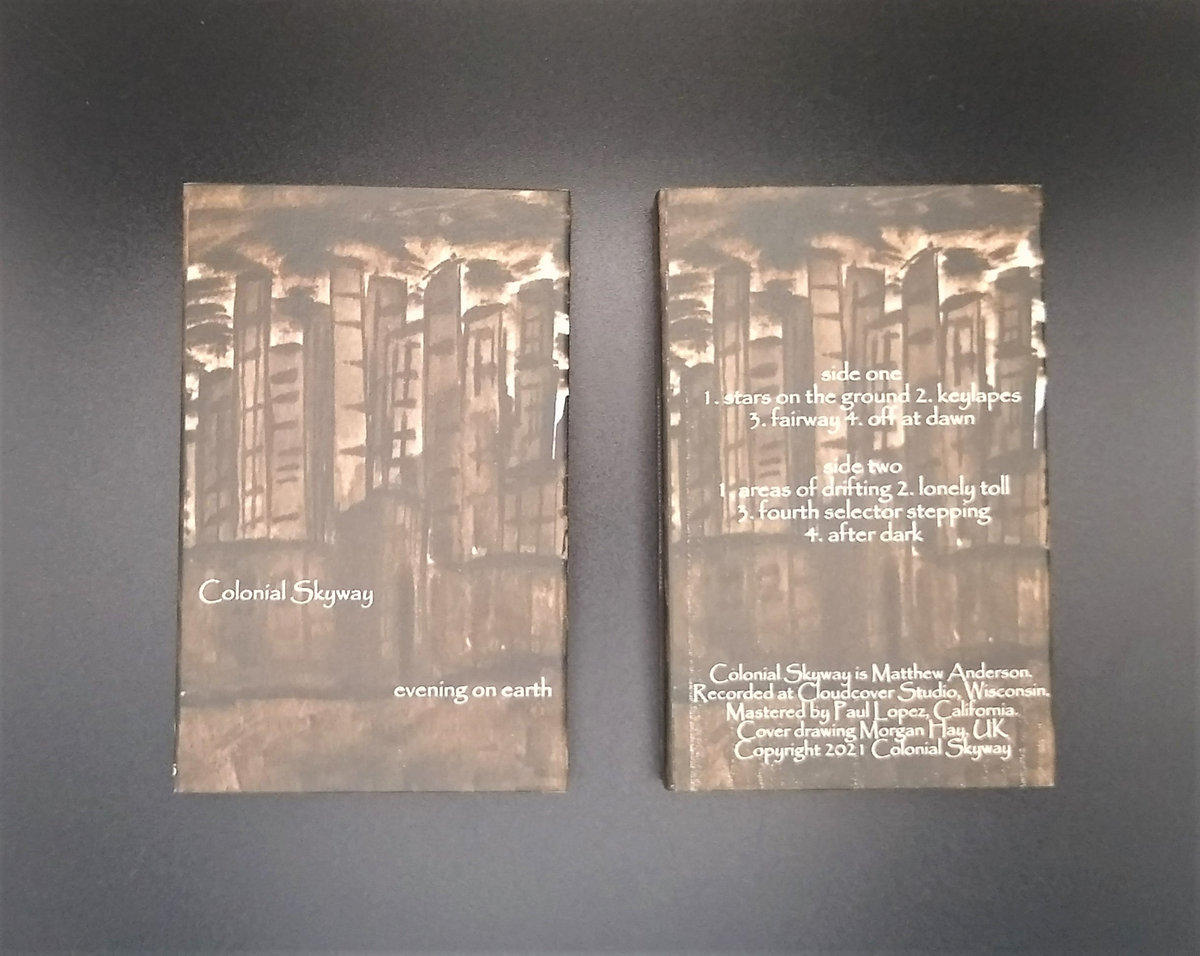 Colonial Skyway
evening on earth
side one
1. stars on the ground 2. keylapes
3. fairway 4. off at dawn
side two
1. areas of drifting 2. lonely toll
3. fourth selector stepping
4. after dark
Colonial Skyway is Matthew Anderson.
Recorded at Cloudcover Studio, Wisconsin.
Mastered by Paul Lopez, California.
Cover drawing Morgan Hay, UK
Copyright 2021 Colonial Skyway